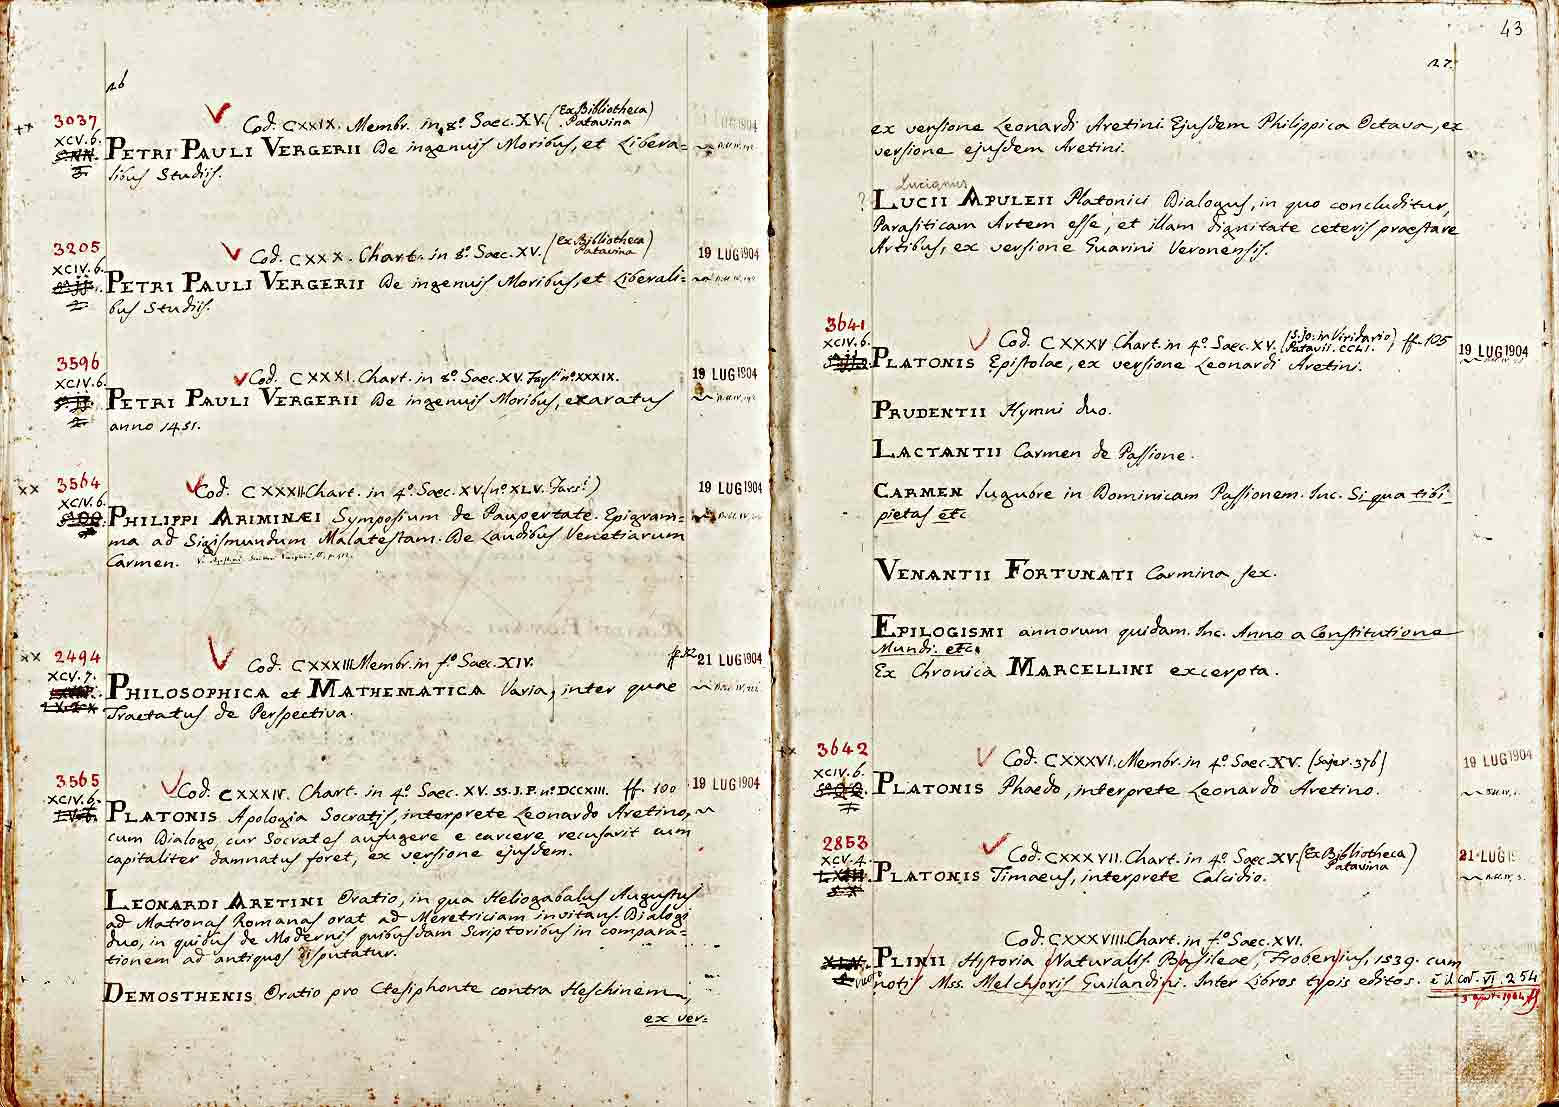 26
3037
XCV.6.
Cod. CXXIX. Membr. in 8.º Saec. XV. (Ex Bibliotheca Patavina)
PETRI PAULI VERGERII De ingenuis Moribus, et Libera=
libus Studiis.
3205
XCIV.6.
Cod. CXXX. Chart. in 8.º Saec. XV. (Ex Bibliotheca Patavina)
19 LUG 1904
PETRI PAULI VERGERII De ingenuis Moribus, et Liberali=
bus Studiis.
3596
XCIV.6.
Cod. CXXXI. Chart. in 8.º Saec. XV. Fars. nº XXXIX.
19 LUG 1904
PETRI PAULI VERGERII De ingenuis Moribus, exaratus
anno 1451.
xx 3564
XCIV.6.
Cod. CXXXII. Chart. in 4.º Saec. XV. (nº XLV. Fars.)
19 LUG 1904
PHILIPPI ARIMINÆI Symposium de Paupertate. Epigram=
ma ad Sigismundum Malatestam. De Laudibus Venetiarum
Carmen.
xx 2494
XCV.7.
Cod. CXXXIII. Membr. in f.º Saec. XIV.
21 LUG 1904
PHILOSOPHICA et MATHEMATICA Varia, inter quae
Tractatus de Perspectiva.
3565
XCIV.6.
Cod. CXXXIV. Chart. in 4.º Saec. XV. SS. J. P. nº DCCXIII. ff. 100
19 LUG 1904
PLATONIS Apologia Socratis, interprete Leonardo Aretino,
cum Dialogo, cur Socrates aufugere e carcere recusarit cum
capitaliter damnatus foret, ex versione ejusdem.
LEONARDI ARETINI Oratio, in qua Heliogabalus Augustus
ad Matronas Romanas orat ad Meretriciam invitans. Dialogi
duo, in quibus de Modernis quibusdam Scriptoribus in compara=
tionem ad antiquos disputatur.
DEMOSTHENIS Oratio pro Ctesiphonte contra Aeschinem,
ex ver=
43
27.
ex versione Leonardi Aretini. Ejusdem Philippica Octava, ex
versione ejusdem Aretini.
Lucianus
? LUCII APULEII Platonici Dialogus, in quo concluditur,
Parasiticam Artem esse, et illam dignitate ceteris praestare
Artibus, ex versione Guarini Veronensis.
3641
XCIV.6.
Cod. CXXXV. Chart. in 4.º Saec. XV. (S. Jo: in Viridario, Patavii. CCLI.) ff. 105
19 LUG 1904
PLATONIS Epistolae, ex versione Leonardi Aretini.
PRUDENTII Hymni duo.
LACTANTII Carmen de Passione.
CARMEN lugubre in Dominicam Passionem. Inc. Si qua tibi
pietas etc.
VENANTII FORTUNATI Carmina sex.
EPILOGISMI annorum quidam. Inc. Anno a Constitutione
Mundi. etc.
Ex Chronica MARCELLINI excerpta.
xx 3642
XCIV.6.
Cod. CXXXVI. Membr. in 4.º Saec. XV. (super. 376)
19 LUG 1904
PLATONIS Phaedo, interprete Leonardo Aretino.
2853
XCV.4.
Cod. CXXXVII. Chart. in 4.º Saec. XV. (Ex Bibliotheca Patavina)
21 LUG
PLATONIS Timaeus, interprete Calcidio.
Cod. CXXXVIII. Chart. in f.º Saec. XVI.
PLINII Historia Naturalis. Basileae, Frobenius, 1539. cum
notis Mss. Melchioris Guilandini. Inter Libros typis editos. è il cod. VI. 254